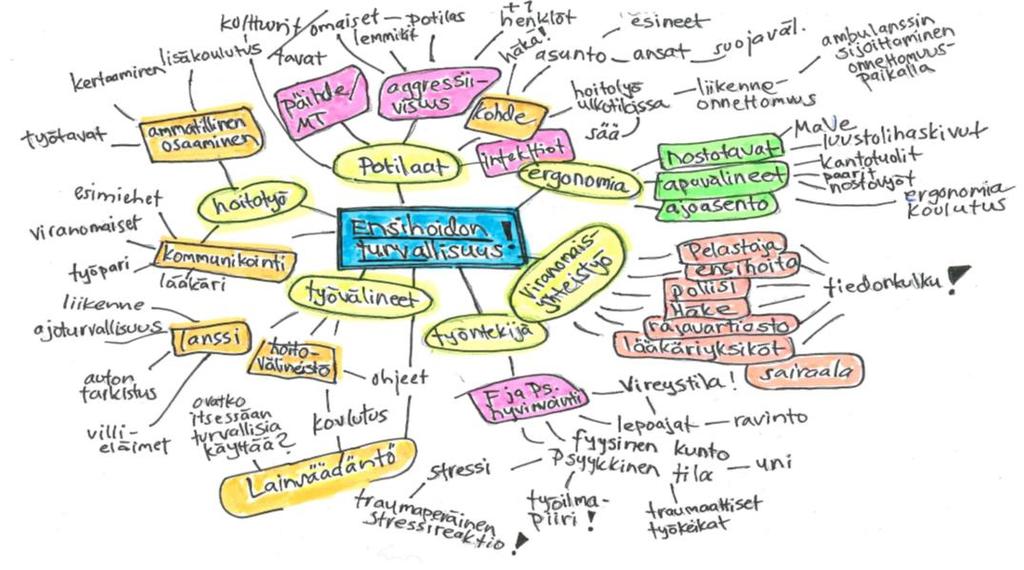 kulttuurit
tavat
omaiset – potilas
lemmikit
+?
henklöt
häkä!
esineet
asunto
ansat
suojaväl.
ambulanssin
sijoittaminen
onnettomuus-
paikalla
kertaaminen
lisäkoulutus
työtavat
ammatillinen
osaaminen
Päihde/
MT
aggressii-
visuus
kohde
hoitotyö
ulkotiloissa
sää
liikenne-
onnettomuus
Potilaat
infektiot
ergonomia
nostotavat
apuvälineet
ajoasento
MaVe
luustolihaskivut
kantotuolit
paarit
nostovyöt
ergonomia
koulutus
hoitotyö
esimiehet
viranomaiset
työpari
lääkäri
kommunikointi
Ensihoidon
turvallisuus!
Viranomais-
yhteistyö
Pelastaja
ensihoito
poliisi
Häke
rajavartiosto
lääkäriyksiköt
sairaala
tiedonkulku!
työvälineet
työntekijä
liikenne
ajoturvallisuus
lanssi
auton
tarkistus
villi-
eläimet
hoito-
välineistö
ohjeet
ovatko
itsessään
turvallisia
käyttää?
koulutus
Lainväädäntö
F ja Ps.
hyvinvointi
Vireystila!
lepoajat – ravinto
fyysinen kunto
Psyykkinen tila – uni
stressi
traumaperäinen
stressireaktio!
työilma-
piiri!
traumaattiset
työkeikat